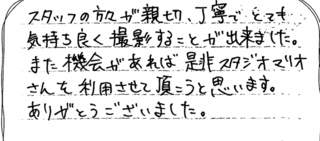 スタッフの方々が親切、丁寧でとても
気持ち良く撮影することが出来ました。
また機会があれば是非スタジオマリオ
さんを利用させて頂こうと思います。
ありがとうございました。